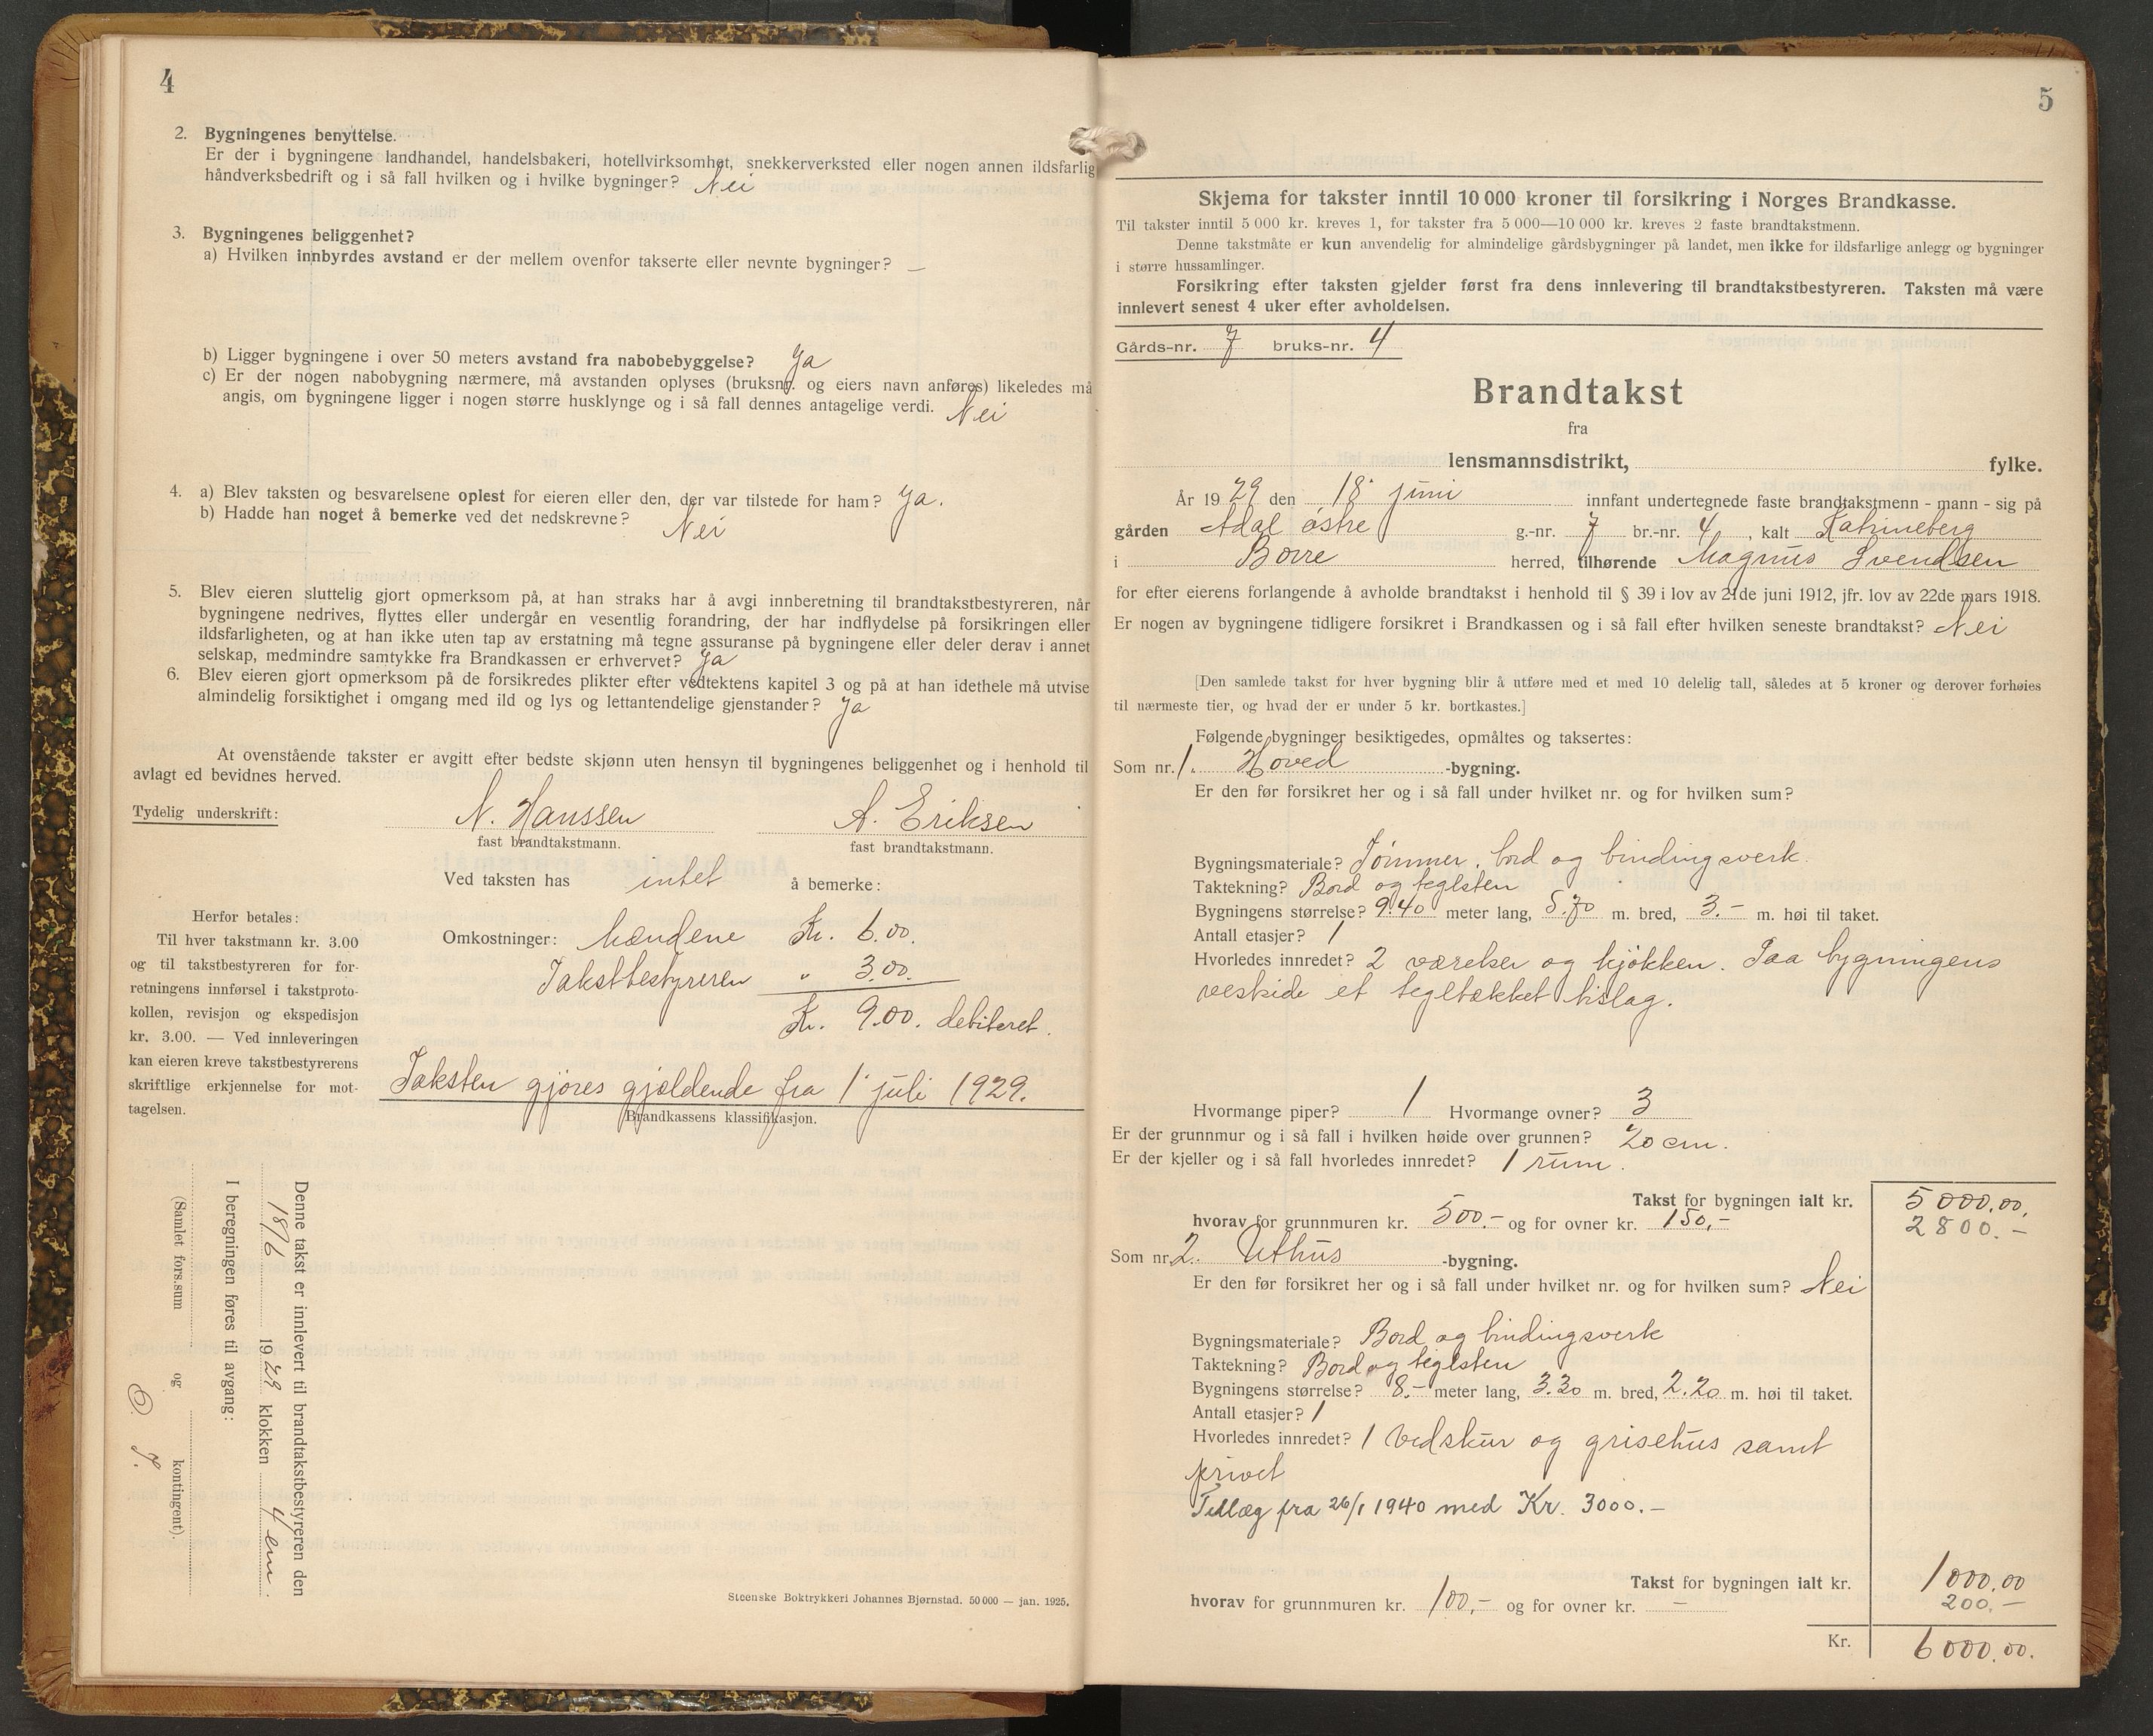 4
2. Bygningenes benyttelse.
Er der i bygningene landhandel, handelsbakeri, hotellvirksomhet, snekkerverksted eller nogen annen ildsfarlig
håndverksbedrift og i så fall hvilken og i hvilke bygninger? Nei
3. Bygningenes beliggenhet?
a) Hvilken innbyrdes avstand er der mellem ovenfor takserte eller nevnte bygninger? —
b) Ligger bygningene i over 50 meters avstand fra nabobebyggelse? Ja
c) Er der nogen nabobygning nærmere, må avstanden oplyses (bruksnr. og eiers navn anføres) likeledes må
angis, om bygningene ligger i nogen større husklynge og i så fall dennes antagelige verdi. Nei
4. a) Blev taksten og besvarelsene oplest for eieren eller den, der var tilstede for ham? Ja.
b) Hadde han noget å bemerke ved det nedskrevne? Nei
5. Blev eieren sluttelig gjort opmerksom på, at han straks har å avgi innberetning til brandtakstbestyreren, når
bygningene nedrives, flyttes eller undergår en vesentlig forandring, der har indflydelse på forsikringen eller
ildsfarligheten, og at han ikke uten tap av erstatning må tegne assuranse på bygningene eller deler derav i annet
selskap, medmindre samtykke fra Brandkassen er erhvervet? Ja
6. Blev eieren gjort opmerksom på de forsikredes plikter efter vedtektens kapitel 3 og på at han idethele må utvise
almindelig forsiktighet i omgang med ild og lys og lettantendelige gjenstander? Ja
At ovenstående takster er avgitt efter bedste skjønn uten hensyn til bygningenes beliggenhet og i henhold til
avlagt ed bevidnes herved.
Tydelig underskrift: N. Hanssen A. Eriksen
fast brandtakstmann. fast brandtakstmann.
Ved taksten has intet å bemerke:
Herfor betales:
Til hver takstmann kr. 3.00
og til takstbestyreren for for-
retningens innførsel i takstproto-
kollen, revisjon og ekspedisjon
kr. 3.00. — Ved innleveringen
kan eieren kreve takstbestyrerens
skriftlige erkjennelse for mot-
tagelsen.
Omkostninger: Mændene Kr. 6.00.
Takstbestyreren " 3.00.
Kr. 9.00. debiteret.
Taksten gjøres gjældende fra 1' juli 1929.
Brandkassens klassifikasjon.
Denne takst er innlevert til brandtakstbestyreren den
18/6 1929 klokken 4 em.
I beregningen føres til avgang:
(Samlet fors.sum og kontingent).
Steenske Boktrykkeri Johannes Bjørnstad. 50 000 — jan. 1925.
5
Skjema for takster inntil 10 000 kroner til forsikring i Norges Brandkasse.
Til takster inntil 5 000 kr. kreves 1, for takster fra 5 000—10 000 kr. kreves 2 faste brandtakstmenn.
Denne takstmåte er kun anvendelig for almindelige gårdsbygninger på landet, men ikke for ildsfarlige anlegg og bygninger
i større hussamlinger.
Forsikring efter taksten gjelder først fra dens innlevering til brandtakstbestyreren. Taksten må være
innlevert senest 4 uker efter avholdelsen.
Gårds-nr. 7 bruks-nr. 4
Brandtakst
fra
lensmannsdistrikt, fylke.
År 1929 den 18' juni innfant undertegnede faste brandtakstmenn - mann - sig på
gården Adal østre g.-nr. 7 br.-nr. 4, kalt Katrineberg
i Borre herred, tilhørende Magnus Svendsen
for efter eierens forlangende å avholde brandtakst i henhold til § 39 i lov av 21de juni 1912, jfr. lov av 22de mars 1918.
Er nogen av bygningene tidligere forsikret i Brandkassen og i så fall efter hvilken seneste brandtakst? Nei
[Den samlede takst for hver bygning blir å utføre med et med 10 delelig tall, således at 5 kroner og derover forhøies
til nærmeste tier, og hvad der er under 5 kr. bortkastes.]
Følgende bygninger besiktigedes, opmåltes og taksertes:
Som nr. 1. Hoved -bygning.
Er den før forsikret her og i så fall under hvilket nr. og for hvilken sum?
Bygningsmateriale? Tømmer, bord og bindingsverk.
Taktekning? Bord og teglsten
Bygningens størrelse? 9.40 meter lang, 5.70 m. bred, 3.- m. høi til taket.
Antall etasjer? 1
Hvorledes innredet? 2 værelser og kjøkken. Paa bygningens
vestside et tegltækket tislag.
Hvormange piper? 1 Hvormange ovner? 3
Er der grunnmur og i så fall i hvilken høide over grunnen? 20 cm.
Er der kjeller og i så fall hvorledes innredet? 1 rum.
Takst for bygningen ialt kr. 5000.00.
hvorav for grunnmuren kr. 500.- og for ovner kr. 150.- 2800.-
Som nr. 2. Uthus -bygning.
Er den før forsikret her og i så fall under hvilket nr. og for hvilken sum? Nei
Bygningsmateriale? Bord og bindingsverk
Taktekning? Bord og teglsten
Bygningens størrelse? 8.- meter lang, 3.30 m. bred, 2.20 m. høi til taket.
Antall etasjer? 1
Hvorledes innredet? 1 vedskur og grisehus samt
privet
Tillæg fra 26/1 1940 med Kr. 3000.-
Takst for bygningen ialt kr. 1000.00
hvorav for grunnmuren kr. 100.- og for ovner kr. - 200.-
Kr. 6000.00.